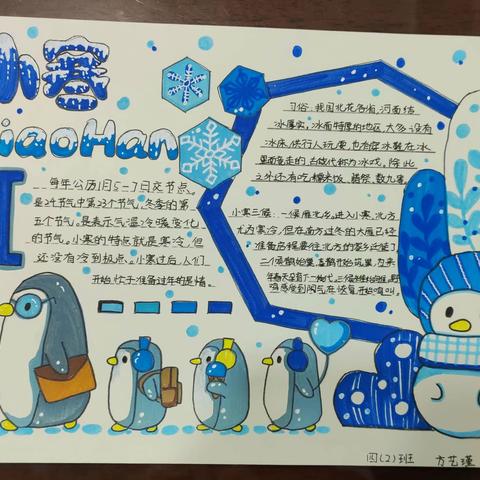 小寒
iaoHan
每年公历1月5-7日交节点
是24节气中第23个节气,冬季的第
五个节气。是表示气温冷暖变化
的节气。小寒的特点就是寒冷,但
还没有冷到极点。小寒过后,人们
开始忙于准备过年的事情。
习俗:我国北方各省,河面结
冰厚实,冰面特厚的地区,大多设有
冰床,供行人玩耍,也有穿冰鞋在冰
面竞走的,古代称为冰戏。除此
之外还有吃糯米饭、腊祭、数九寒
小寒三候:一候雁北乡。进入小寒,北方
尤为寒冷,但在南方过冬的大雁已经
准备启程要往北方的家乡迁徙了
二候鹊始巢,喜鹊开始筑巢,
感受到阳气在恢复开始鸣叫。
四(2)班
方艺瑾